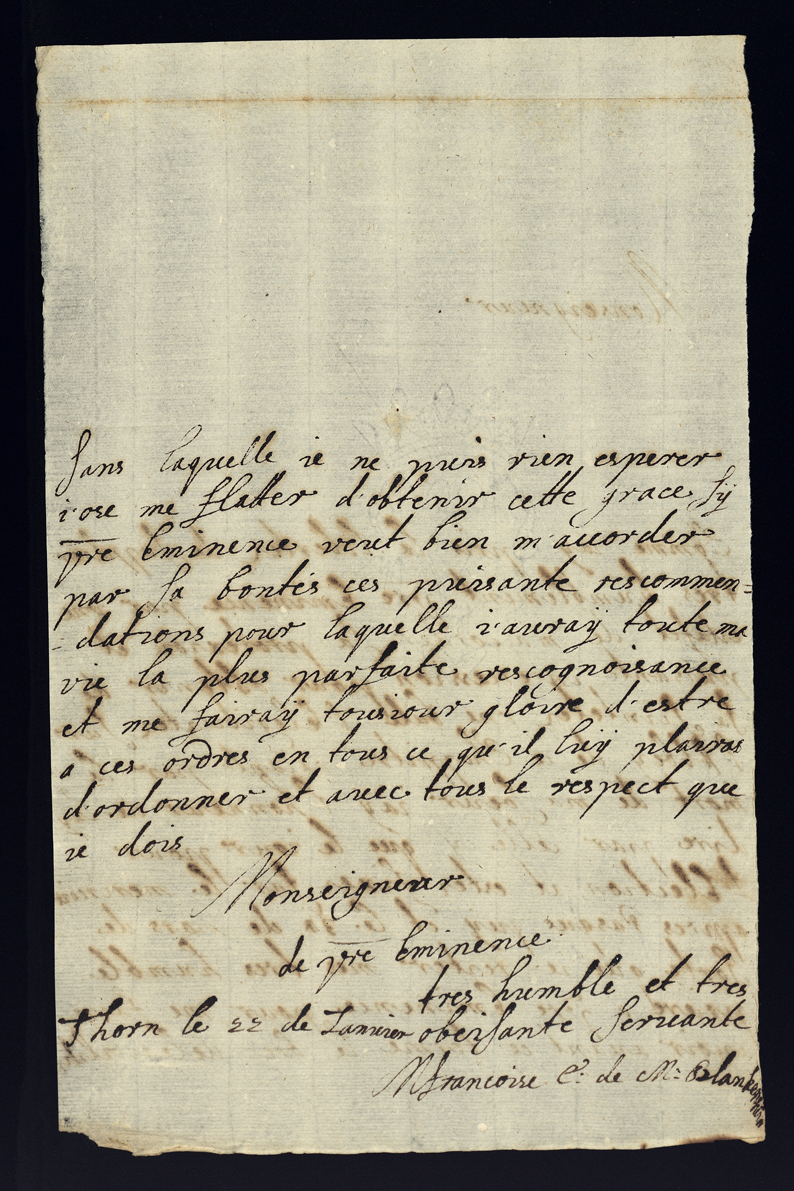 sans laquelle ie ne puis rien esperer
i'ose me flatter d'obtenir cette grace sÿ
vre Eminence veut bien m'accorder
par sa bontés ces puisante rescommen=
=dations pour laquelle i'auraÿ toute ma
vie la plus parfaite rescognoisance
et me fairaÿ tousiour gloire d'estre
a ces ordres en tous ce qu'il luÿ plairas
d'ordonner et avec tous le respect que
ie dois
Monseigneur
de vre Eminence
tres humble et tres
Thorn le 22 de Ianvier obeisante servante
MFrancoise C: de M: Blankenheim